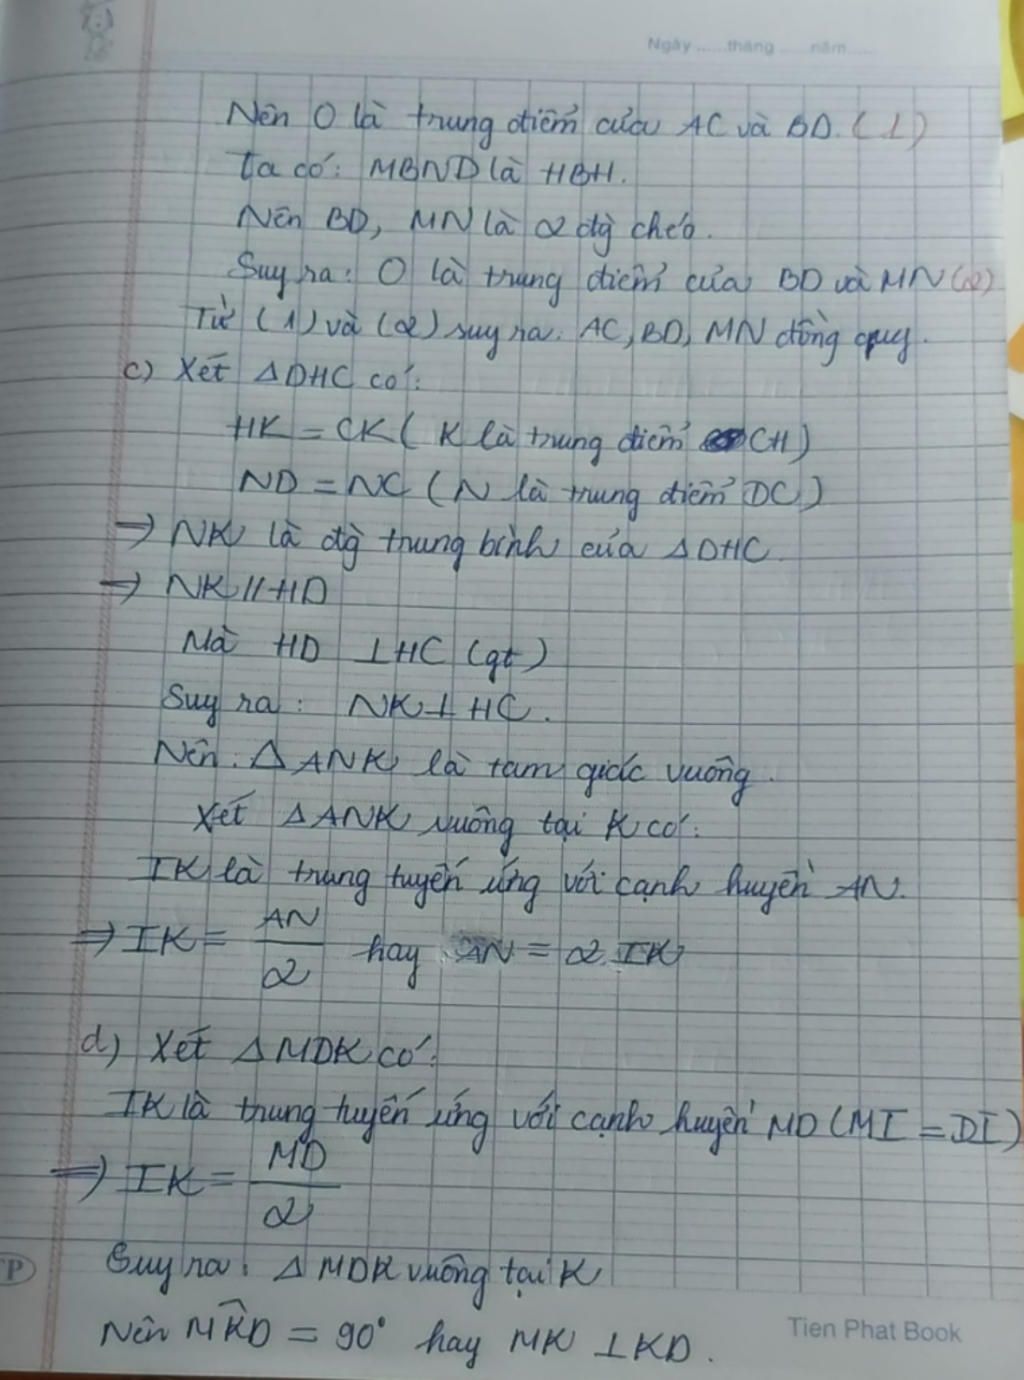 Ngày ......tháng ......năm......
Nên O là trung điểm của AC và BD. (1)
Ta có: MBND là HBH.
Nên BD, MN là 2 đg chéo.
Suy ra: O là trung điểm của BD và MN (2)
Từ (1) và (2) suy ra: AC, BD, MN đồng quy.
c) Xét ΔDHC có:
HK = CK ( K là trung điểm CH)
ND = NC ( N là trung điểm DC)
⇒ NK là đg trung bình của ΔDHC.
⇒ NK // HD
Mà HD ⊥ HC (gt)
Suy ra: NK ⊥ HC.
Nên: ΔANK là tam giác vuông.
Xét ΔANK vuông tại K có:
IK là trung tuyến ứng với cạnh huyền AN.
⇒ IK = AN/2 hay AN = 2.IK
d) Xét ΔMDK có:
IK là trung tuyến ứng với cạnh huyền MD (MI = DI)
⇒ IK = MD/2
Suy ra: ΔMDK vuông tại K
Nên M̂KD = 90° hay MK ⊥ KD.
Tien Phat Book
TP